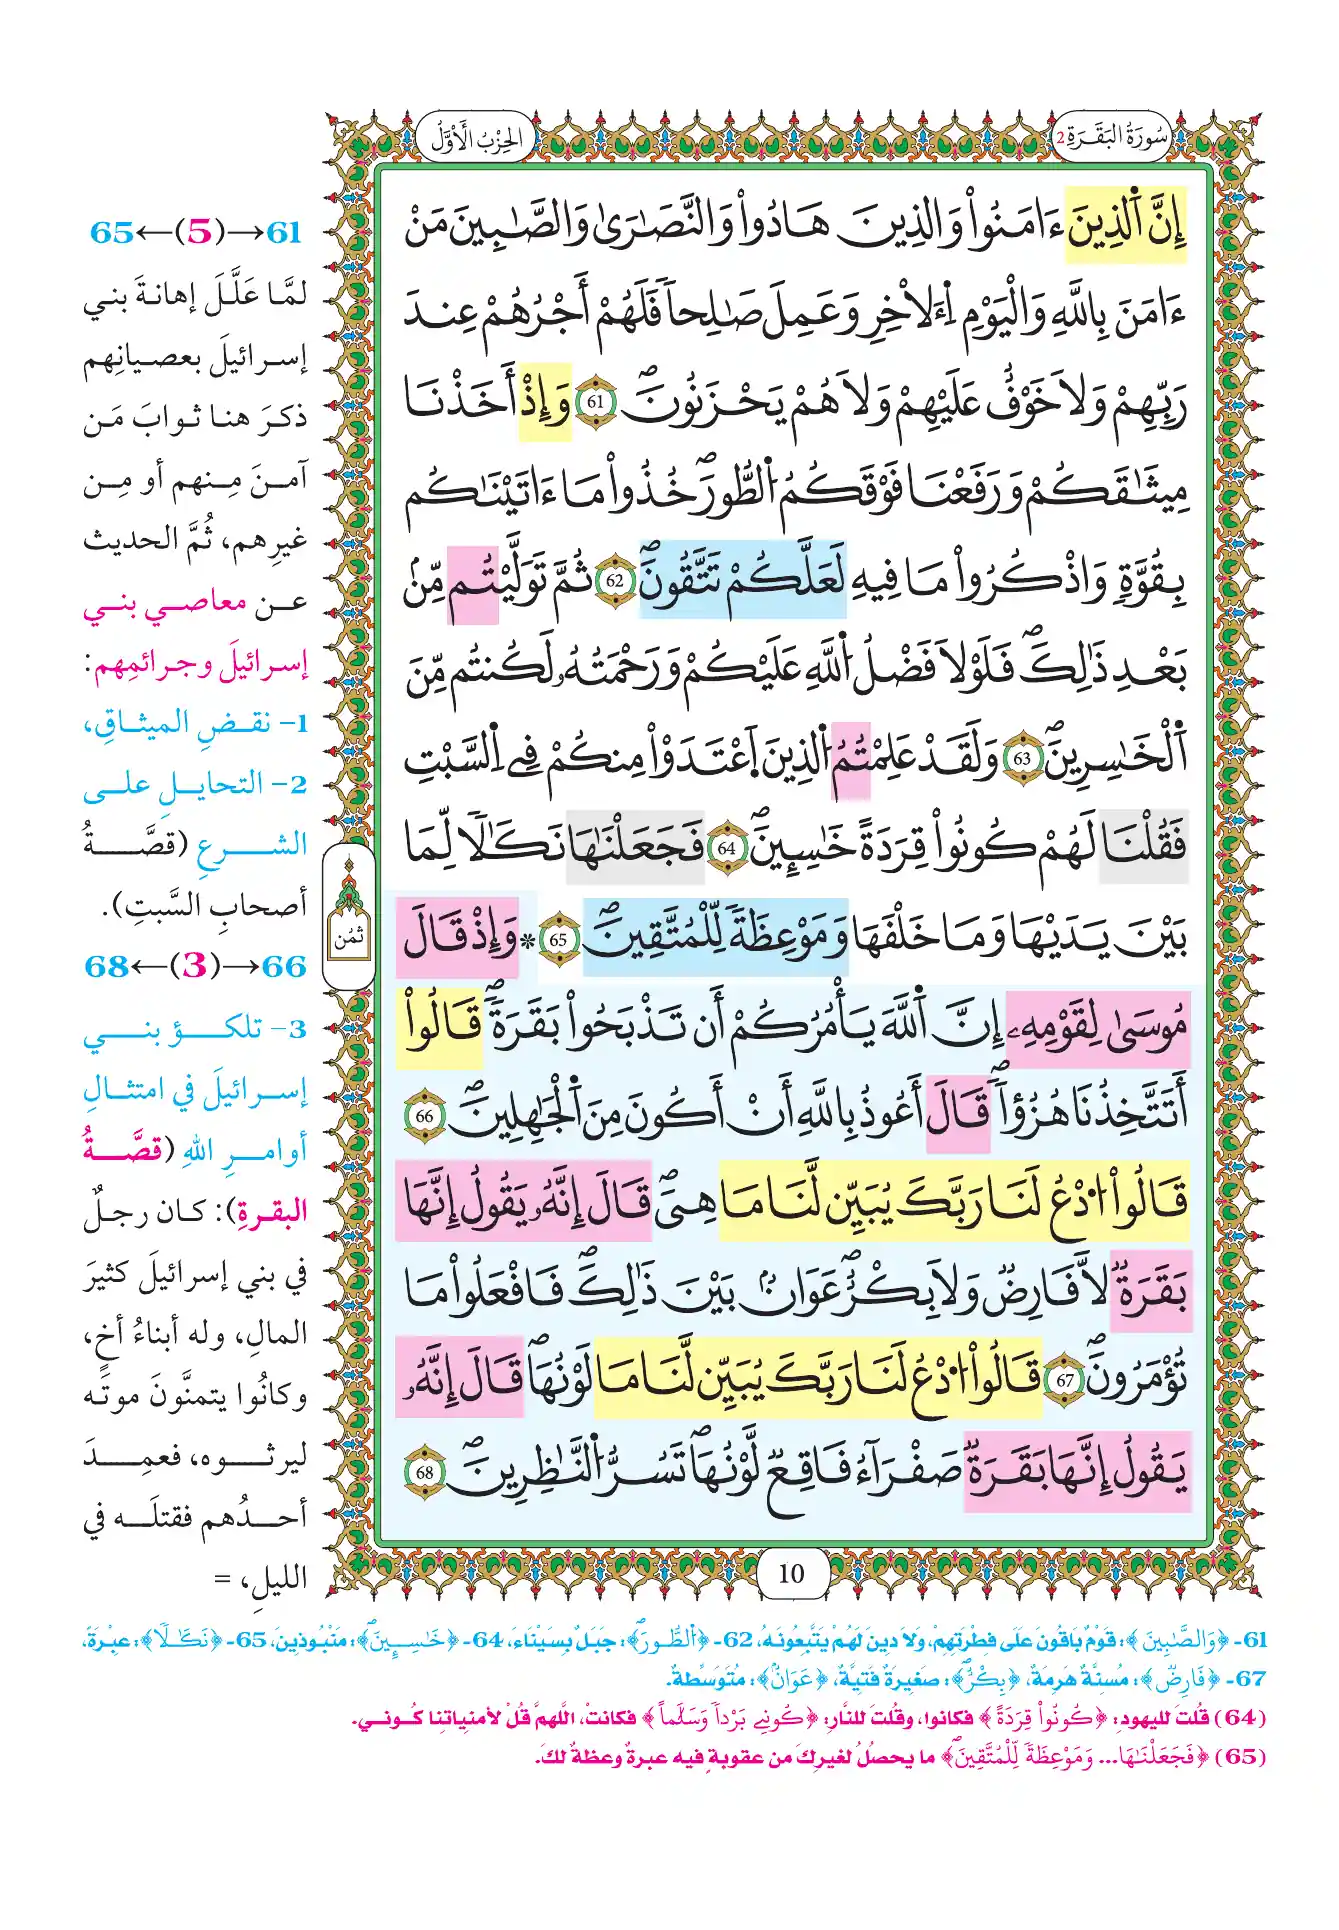 سُورَةُ الْبَقَرَةِ 2
الحِزْبُ الْأَوَّلُ
إِنَّ اَ۬لذِينَ ءَامَنُواْ وَالذِينَ هَادُواْ وَالنَّصَٰرَىٰ وَالصَّٰبِينَ مَنْ
ءَامَنَ بِاللَّهِ وَالْيَوْمِ اِ۬ءَلَاخِرِ وَعَمِلَ صَٰلِحاٗ فَلَهُمْ أَجْرُهُمْ عِندَ
رَبِّهِمْ وَلَا خَوْفٌ عَلَيْهِمْ وَلَا هُمْ يَحْزَنُونَۖ 61 وَإِذْ أَخَذْنَا
مِيثَٰقَكُمْ وَرَفَعْنَا فَوْقَكُمُ اُ۬لطُّورَۖ خُذُواْ مَا ءَاتَيْنَٰكُم
بِقُوَّةٖ وَاذْكُرُواْ مَا فِيهِ لَعَلَّكُمْ تَتَّقُونَۖ 62 ثُمَّ تَوَلَّيْتُم مِّنۢ
بَعْدِ ذَٰلِكَۖ فَلَوْلَا فَضْلُ اُ۬للَّهِ عَلَيْكُمْ وَرَحْمَتُهُۥ لَكُنتُم مِّنَ
اَ۬لْخَٰسِرِينَۖ 63 وَلَقَدْ عَلِمْتُمُ اُ۬لذِينَ اَ۪عْتَدَوْاْ مِنكُمْ فِے اِ۬لسَّبْتِ
فَقُلْنَا لَهُمْ كُونُواْ قِرَدَةً خَٰسِـِٕينَۖ 64 فَجَعَلْنَٰهَا نَكَٰلاٗ لِّمَا
بَيْنَ يَدَيْهَا وَمَا خَلْفَهَا وَمَوْعِظَةٗ لِّلْمُتَّقِينَۖ 65 * وَإِذْ قَالَ
مُوسَىٰ لِقَوْمِهِۦٓ إِنَّ اَ۬للَّهَ يَأْمُرُكُمْ أَن تَذْبَحُواْ بَقَرَةٗۖ قَالُواْ
أَتَتَّخِذُنَا هُزُؤاٗۖ قَالَ أَعُوذُ بِاللَّهِ أَنْ أَكُونَ مَِنَ اَ۬لْجَٰهِلِينَۖ 66
قَالُواْ اُ۟دْعُ لَنَا رَبَّكَ يُبَيِّن لَّنَا مَا هِيَۖ قَالَ إِنَّهُۥ يَقُولُ إِنَّهَا
بَقَرَةٞ لَّا فَارِضٞ وَلَا بِكْرٌۖ عَوَانُۢ بَيْنَ ذَٰلِكَۖ فَافْعَلُواْ مَا
تُؤْمَرُونَۖ 67 قَالُواْ اُ۟دْعُ لَنَا رَبَّكَ يُبَيِّن لَّنَا مَا لَوْنُهَاۖ قَالَ إِنَّهُۥ
يَقُولُ إِنَّهَا بَقَرَةٞ صَفْرَآءُ فَاقِعٞ لَّوْنُهَا تَسُرُّ اُ۬لنَّٰظِرِينَۖ 68
10
ثمُن
61→(5)←65
لمَّا عَلَّلَ إهانةَ بني
إسرائيلَ بعصيانِهم
ذكرَ هنا ثوابَ مَن
آمنَ مِنهم أو مِن
غيرِهم، ثُمَّ الحديث
عن معاصي بني
إسرائيلَ وجرائمِهم:
1- نقضِ الميثاقِ،
2- التحايلِ على
الشرعِ (قصَّةُ
أصحابِ السَّبتِ).
66→(3)←68
3- تلكؤ بني
إسرائيلَ في امتثالِ
أوامرِ اللهِ (قصَّةُ
البقرةِ): كان رجلٌ
في بني إسرائيلَ كثيرَ
المالِ، وله أبناءُ أخٍ،
وكانُوا يتمنَّونَ موتَه
ليرثوه، فعمِدَ
أحدُهم فقتلَه في
الليلِ، =
61- ﴿وَالصَّٰبِينَ﴾: قَوْمٌ بَاقُونَ عَلَى فِطْرَتِهِمْ، وَلَا دِينَ لَهُمْ يَتَّبِعُونَهُ، 62- ﴿اُ۬لطُّورَۖ﴾: جَبَلٌ بِسَيْنَاءَ، 64- ﴿خَٰسِـِٕينَۖ﴾: مَنْبُوذِينَ، 65- ﴿نَكَٰلاٗ﴾: عِبْرَةً،
67- ﴿فَارِضٞ﴾: مُسِنَّةٌ هَرِمَةٌ، ﴿بِكْرٌۖ﴾: صَغِيرَةٌ فَتِيَّةٌ، ﴿عَوَانُۢ﴾: مُتَوَسِّطَةٌ.
(64) قُلتَ لليهود: ﴿كُونُواْ قِرَدَةً﴾ فكانوا، وقُلتَ للنَّارِ: ﴿كُونِے بَرْداٗ وَسَلَٰماً﴾ فكانتْ، اللَّهمَّ قُلْ لأمنياتِنا كُوني.
(65) ﴿فَجَعَلْنَٰهَا... وَمَوْعِظَةٗ لِّلْمُتَّقِينَۖ﴾ ما يحصُلُ لغيرِكَ من عقوبةٍ فيه عبرةٌ وعظةٌ لكَ.